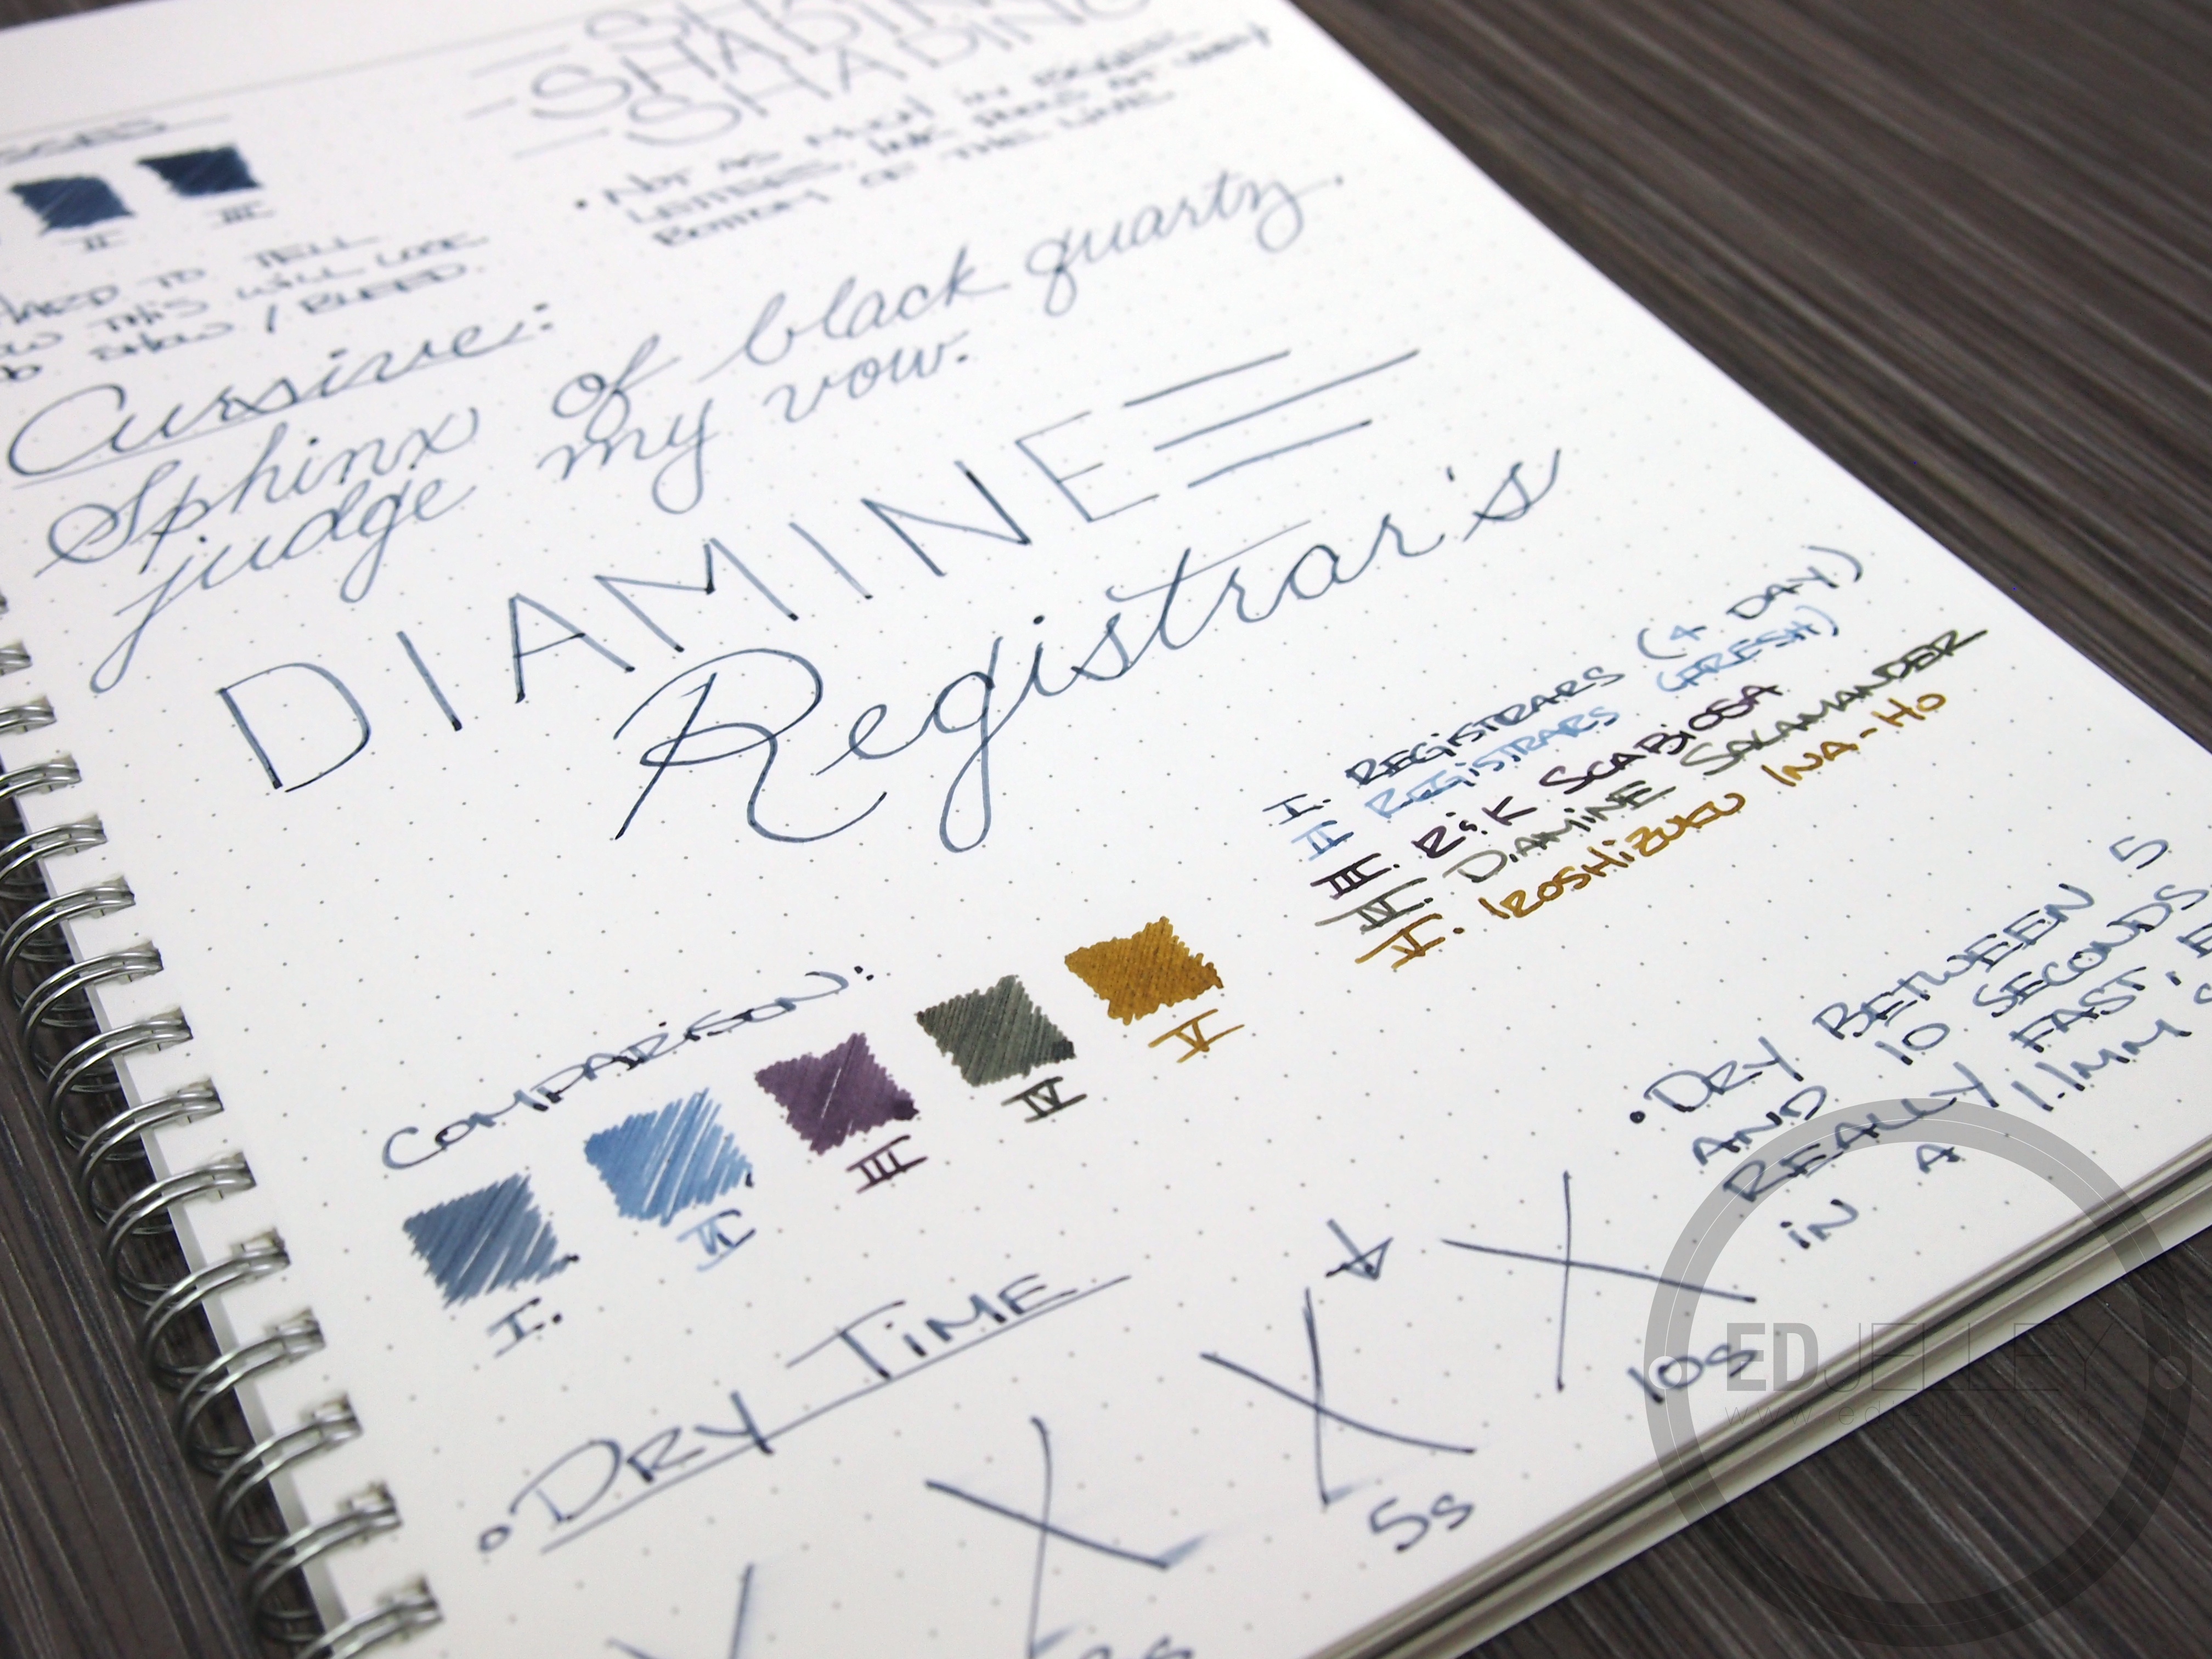 SHADING
SHADING
II
III
• NOT AS MUCH IN BIGGER
LETTERS. INK POOLS AT VERY
BOTTOM OF THE LINE
HARD TO TELL
THIS WILL LOOK
SHOW / BLEED.
Cursive:
Sphinx of black quartz
judge my vow.
DIAMINE
Registrar's
I. REGISTRARS (4 DAY)
II REGISTRARS (FRESH)
III. R&K SCABIOSA
IV. DIAMINE SALAMANDER
V. IROSHIZUKU INA-HO
COMPARISON:
I.
II
III
IV
V
• DRY TIME
5s
10s
• DRY BETWEEN 5
AND 10 SECONDS
REALLY FAST,
IN A 1.1MM
EDJELLEY
www.edjelley.com